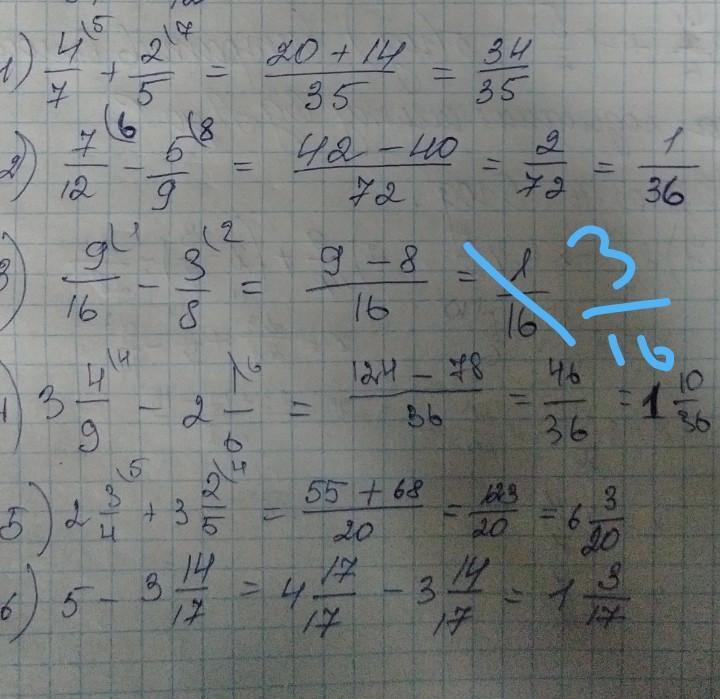 1) 4/7 (5 + 2/5 (7 = (20 + 14)/35 = 34/35
2) 7/12 (6 - 5/9 (8 = (42 - 40)/72 = 2/72 = 1/36
3) 9/16 (1 - 3/8 (2 = (9 - 8)/16 = 1/16 3/16
4) 3 4/9 (4 - 2 1/6 (6 = (124 - 78)/36 = 46/36 = 1 10/36
5) 2 3/4 (5 + 3 2/5 (4 = (55 + 68)/20 = 123/20 = 6 3/20
6) 5 - 3 14/17 = 4 17/17 - 3 14/17 = 1 3/17